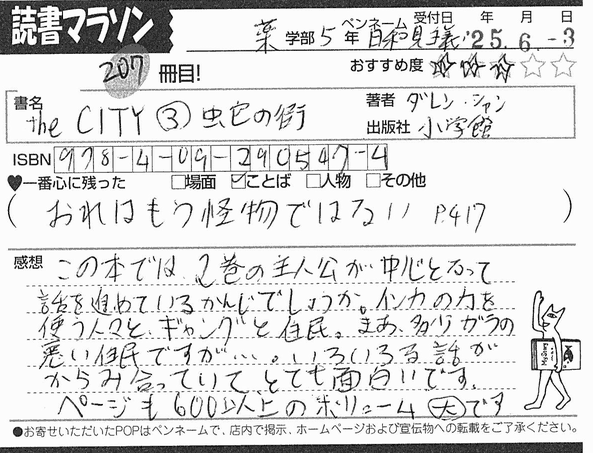 読書マラソン
薬 学部 5 年 ペンネーム 日和見主義 受付日 '25. 年 6. 月 -3 日
207 冊目!
おすすめ度 ★★★☆☆
書名 the CITY ③ 蛇の街
著者 ダレン・シャン
出版社 小学館
ISBN 978-4-09-290547-4
♥一番心に残った □場面 ☑ことば □人物 □その他
( おれはもう怪物ではない P.417 )
感想 この本では、2巻の主人公が中心となって
話を進めているかんじでしょうか。インカの力を
使う人々と、ギャングと住民。まあ、多少ガラの
悪い住民ですが…。いろいろな話が
からみ合っていて、とても面白いです。
ページも600以上のボリューム大です
●お寄せいただいたPOPはペンネームで、店内で掲示、ホームページおよび宣伝物への転載をご了承ください。